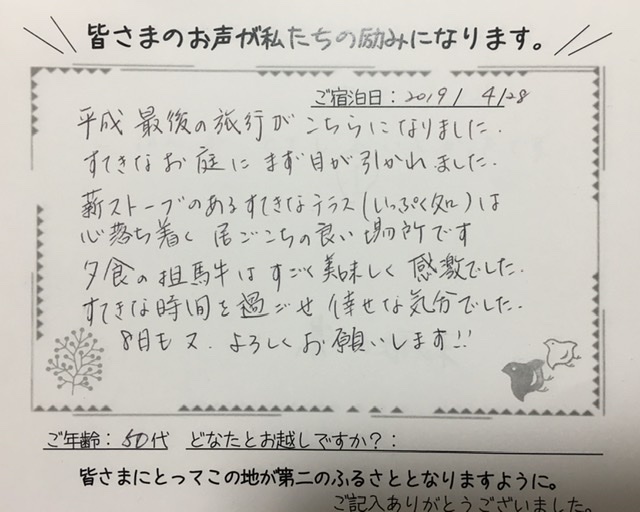 皆さまのお声が私たちの励みになります。
ご宿泊日：2019/4/28
平成最後の旅行がこちらになりました.
すてきなお庭にまず目が引かれました.
薪ストーブのあるすてきなテラス(いっぷく処)は
心落ち着く居ごこちの良い場所です
夕食の但馬牛はすごく美味しく感激でした.
すてきな時間を過ごせ倖せな気分でした.
8月もス.よろしくお願いします!!
ご年齢：50代 どなたとお越しですか？：
皆さまにとってこの地が第二のふるさととなりますように。
ご記入ありがとうございました。